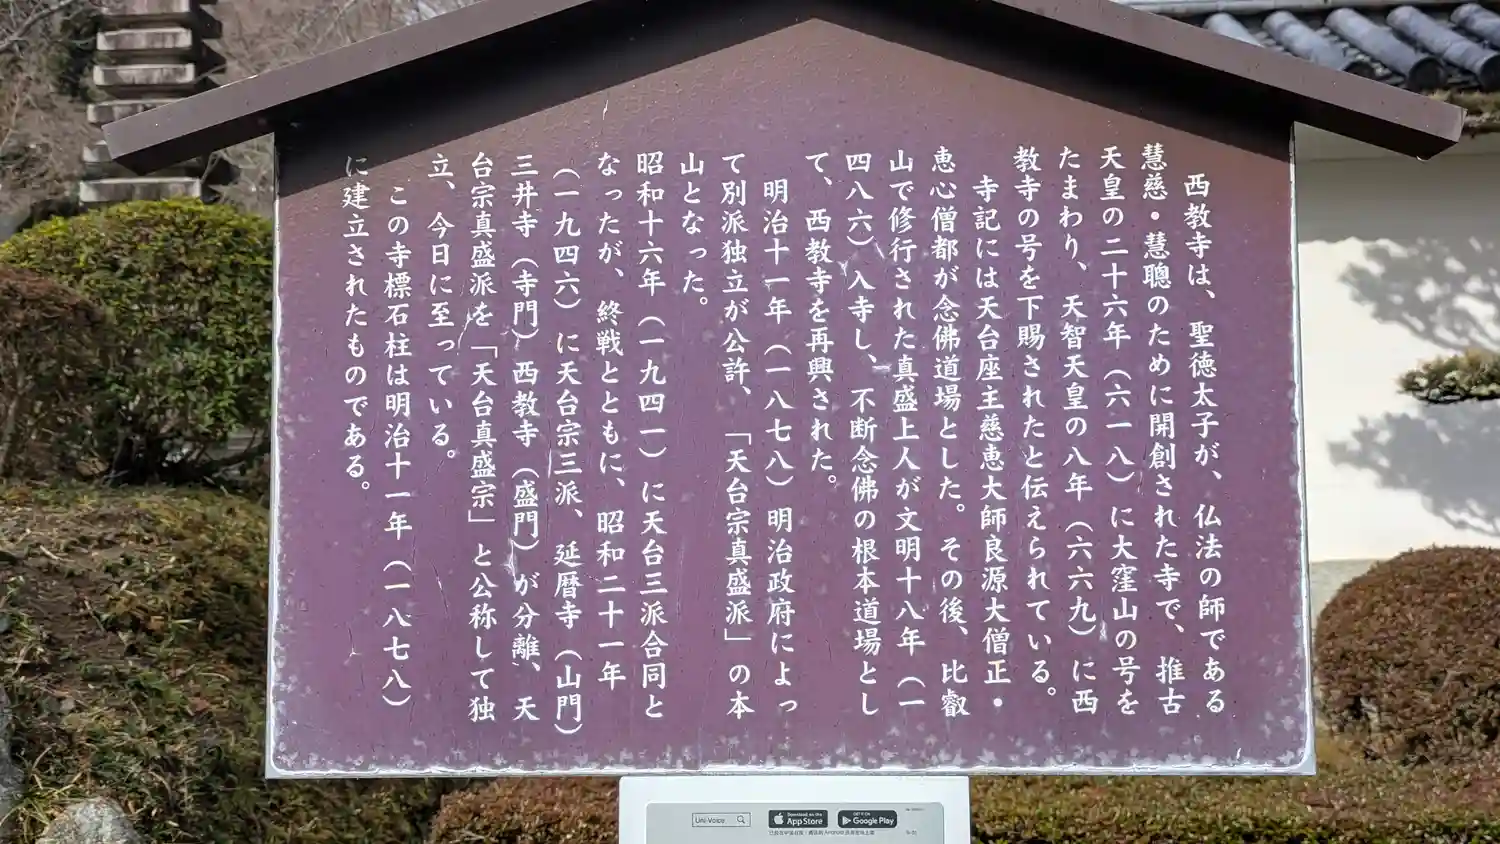 西教寺は、聖徳太子が、仏法の師である
慧慈・慧聰のために開創された寺で、推古
天皇の二十六年（六一八）に大窪山の号を
たまわり、天智天皇の八年（六六九）に西
教寺の号を下賜されたと伝えられている。
寺記には天台座主慈恵大師良源大僧正・
恵心僧都が念佛道場とした。その後、比叡
山で修行された真盛上人が文明十八年（一
四八六）入寺し、不断念佛の根本道場とし
て、西教寺を再興された。
明治十一年（一八七八）明治政府によっ
て別派独立が公許、「天台宗真盛派」の本
山となった。
昭和十六年（一九四一）に天台三派合同と
なったが、終戦とともに、昭和二十一年
（一九四六）に天台宗三派、延暦寺（山門）
三井寺（寺門）西教寺（盛門）が分離、天
台宗真盛派を「天台真盛宗」と公称して独
立、今日に至っている。
この寺標石柱は明治十一年（一八七八）
に建立されたものである。
Uni-Voice
Download on the
App Store
GET IT ON
Google Play